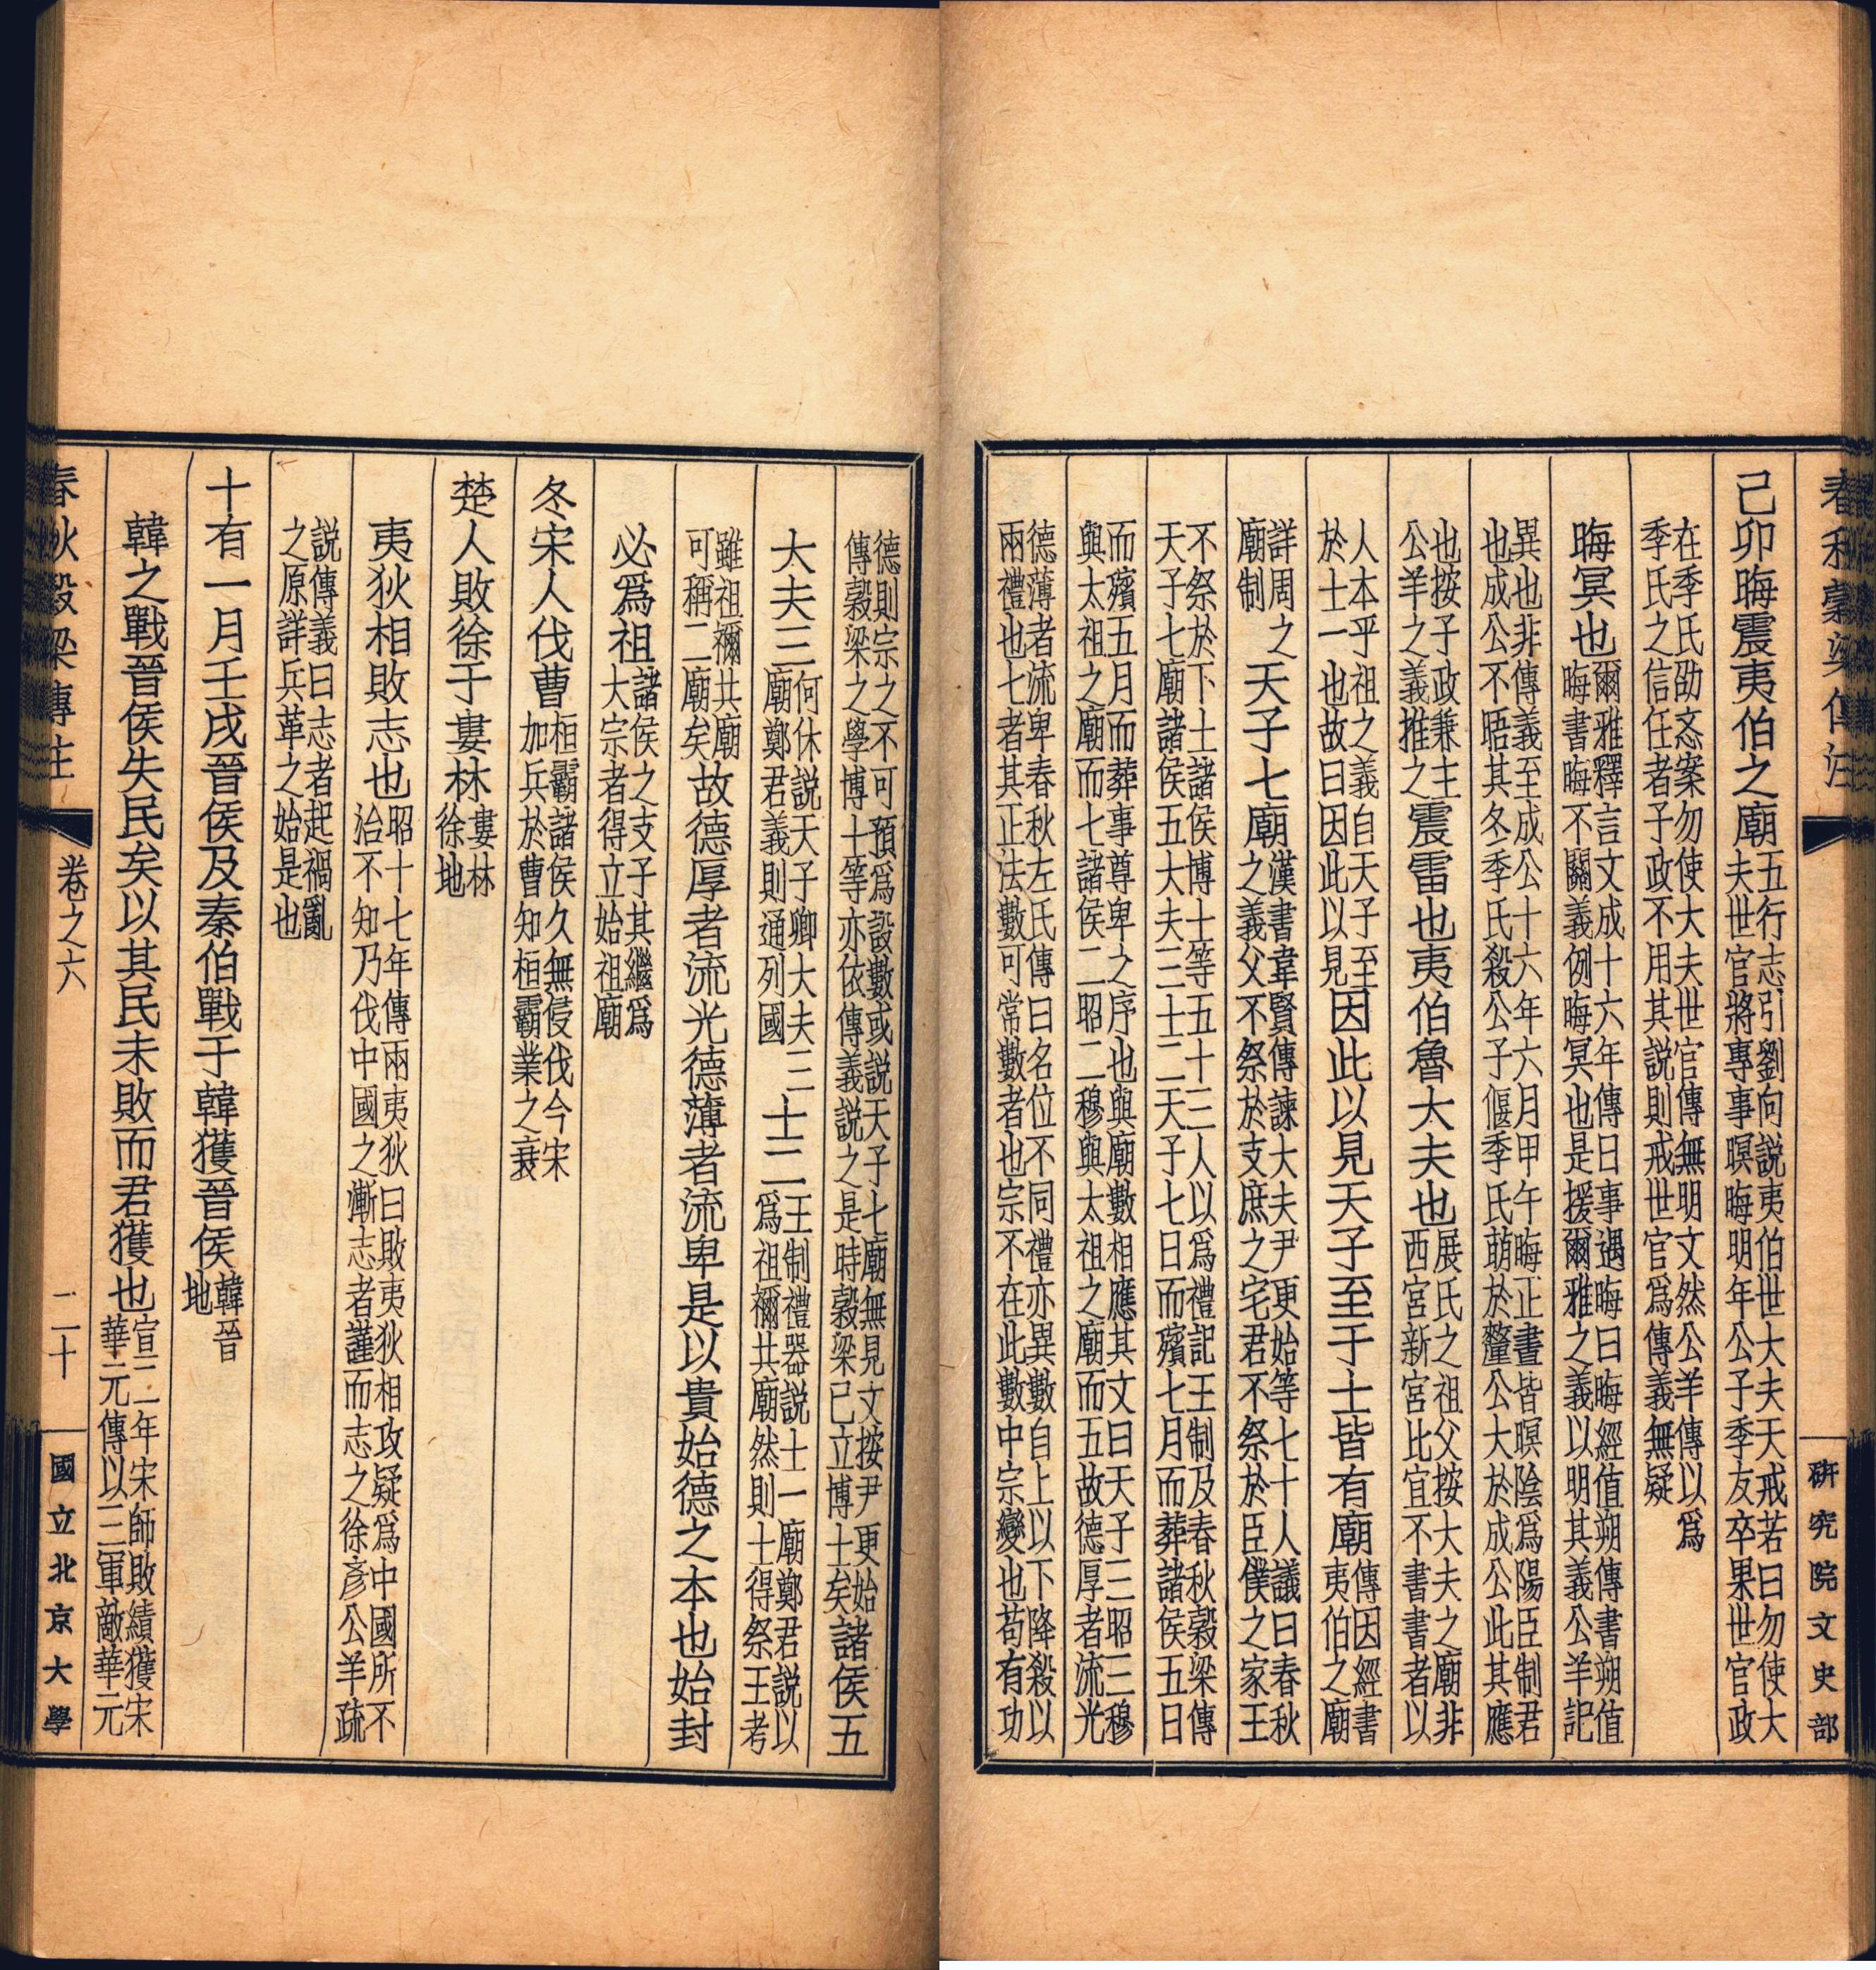 春秋穀梁傳注
研究院文史部
己卯晦震夷伯之廟五行志引劉向説夷伯世大夫天戒若曰勿使大夫世官將專事暝晦明年公子季友卒果世官政
在季氏劭忞案勿使大夫世官傳無明文然公羊傳以爲季氏之信任者子政不用其説則戒世官爲傳義無疑
晦冥也爾雅釋言文成十六年傳曰事遇晦曰晦經值朔傳書朔值晦書晦不關義例晦冥也是援爾雅之義以明其義公羊記
異也非傳義至成公十六年六月甲午晦正晝皆暝陰爲陽臣制君也成公不晤其冬季氏殺公子偃季氏萌於釐公大於成公此其應
也按子政兼主公羊之義推之震雷也夷伯魯大夫也展氏之祖父按大夫之廟非西宮新宮比宜不書書者以
人本乎祖之義自天子至於士一也故曰因此以見因此以見天子至于士皆有廟傳因經書夷伯之廟
詳周之廟制天子七廟漢書韋賢傳諫大夫尹更始等七十人議曰春秋之義父不祭於支庶之宅君不祭於臣僕之家王
不祭於下土諸侯博士等五十三人以爲禮記王制及春秋穀梁傳天子七廟諸侯五大夫三士二天子七日而殯七月而葬諸侯五日
而殯五月而葬事尊卑之序也與廟數相應其文曰天子三昭三穆與太祖之廟而七諸侯二昭二穆與太祖之廟而五故德厚者流光
德薄者流卑春秋左氏傳曰名位不同禮亦異數自上以下降殺以兩禮也七者其正法數可常數者也宗不在此數中宗變也苟有功
德則宗之不可預爲設數或説天子七廟無見文按尹更始傳穀梁之學博士等亦依傳義説之是時穀梁已立博士矣諸侯五
大夫三何休説天子卿大夫三廟鄭君義則通列國士二王制禮器説士一廟鄭君説以爲祖禰共廟然則士得祭王考
雖祖禰共廟可稱二廟矣故德厚者流光德薄者流卑是以貴始德之本也始封
必爲祖諸侯之支子其繼爲大宗者得立始祖廟
冬宋人伐曹桓霸諸侯久無侵伐今宋加兵於曹知桓霸業之衰
楚人敗徐于婁林婁林徐地
夷狄相敗志也昭十七年傳兩夷狄曰敗夷狄相攻疑爲中國所不治不知乃伐中國之漸志者謹而志之徐彥公羊疏
説傳義曰志者起禍亂之原詳兵革之始是也
十有一月壬戌晉侯及秦伯戰于韓獲晉侯韓晉地
韓之戰晉侯失民矣以其民未敗而君獲也宣二年宋師敗績獲宋華元傳以三軍敵華元
春秋穀梁傳注
卷之六
二十
國立北京大學